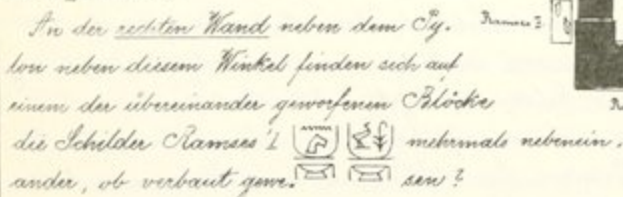 An der rechten Wand neben dem Py-
lon neben diesem Winkel finden sich auf
einem der übereinander geworfenen Blöcke
die Schilder Ramses'I mehrmals nebenein-
ander, ob verbaut gewe- sen?
Ramses I